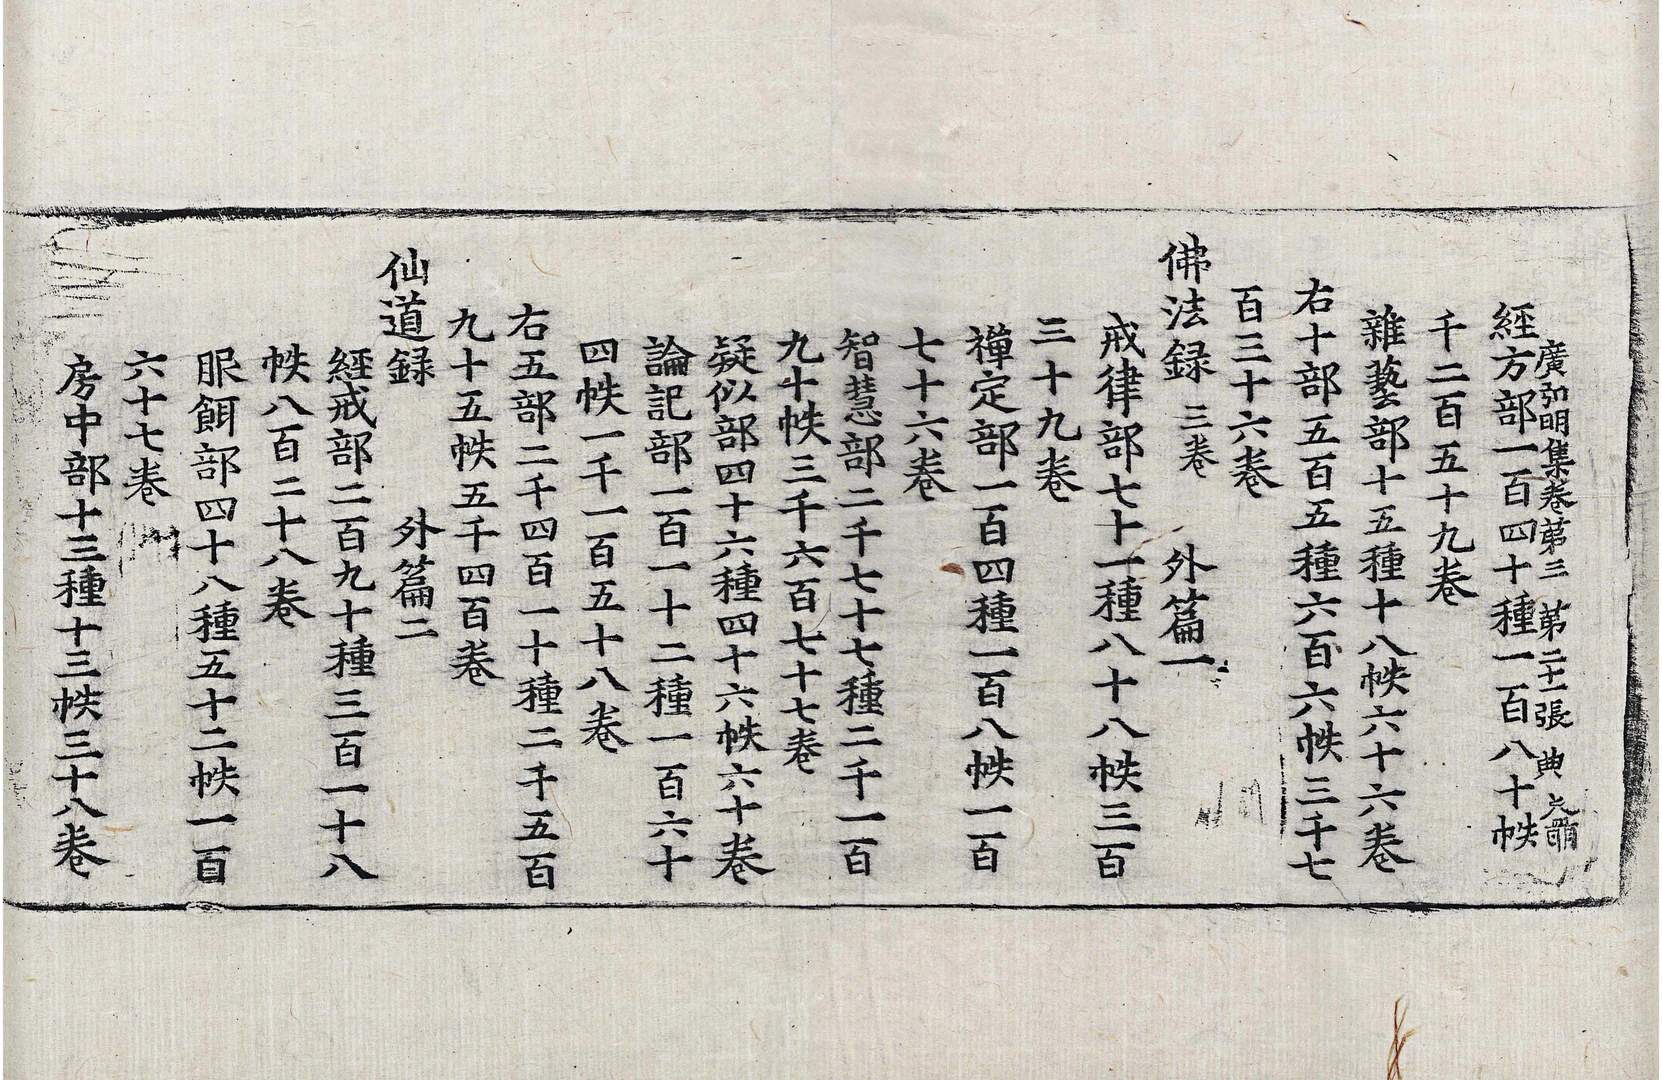 廣弘明集卷苐三 苐二十一張 典
經方部一百四十種一百八十帙
千二百五十九卷
雜藝部十五種十八帙六十六卷
右十部五百五種六百六帙三千七
百三十六卷
佛法録三卷 外篇一
戒律部七十一種八十八帙三百
三十九卷
禪定部一百四種一百八帙一百
七十六卷
智慧部二千七十七種二千一百
九十帙三千六百七十七卷
疑似部四十六種四十六帙六十卷
論記部一百一十二種一百六十
四帙一千一百五十八卷
右五部二千四百一十種二千五百
九十五帙五千四百卷
仙道録 外篇二
經戒部二百九十種三百一十八
帙八百二十八卷
服餌部四十八種五十二帙一百
六十七卷
房中部十三種十三帙三十八卷